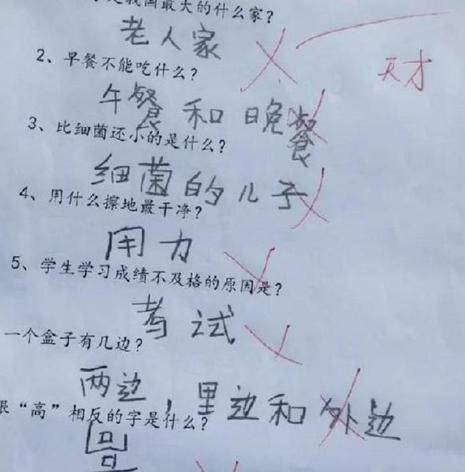 是我国最大的什么家？
老人家
天才
2、早餐不能吃什么？
午餐和晚餐
3、比细菌还小的是什么？
细菌的儿子
4、用什么擦地最干净？
用力
5、学生学习成绩不及格的原因是？
考试
一个盒子有几边？
两边，里边和外边
跟“高”相反的字是什么？